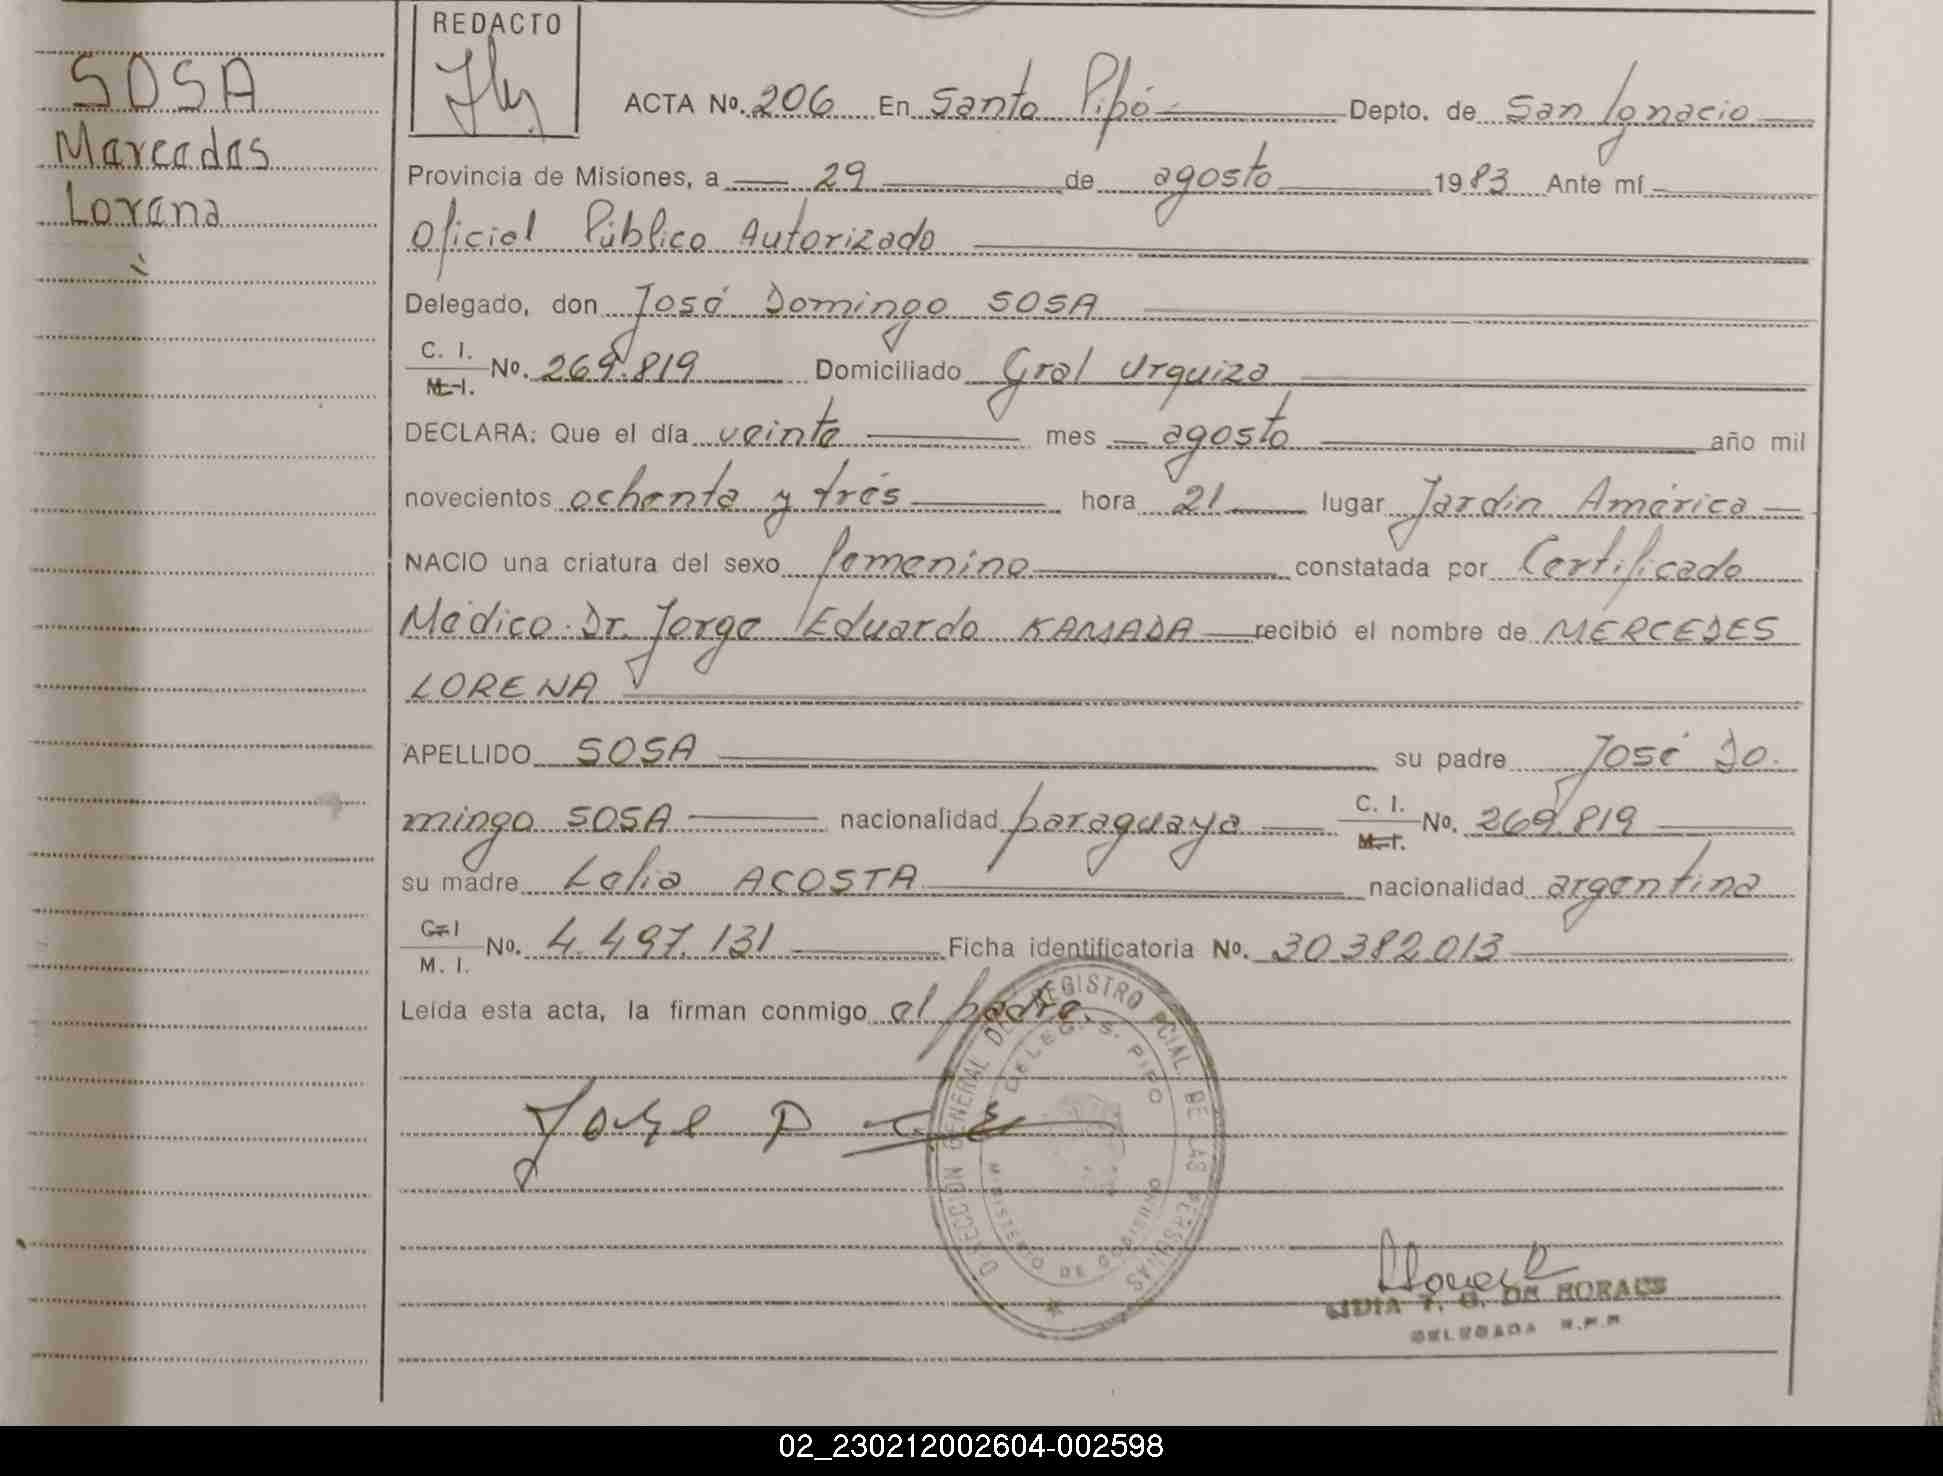 SOSA
Mercedes
Lorena
REDACTO
ACTA No. 206 En Santo Pipó Depto. de San Ignacio
Provincia de Misiones, a 29 de agosto 1983 Ante mí
Oficial Público Autorizado
Delegado, don José Domingo SOSA
C. I.
M. I. No. 269.819 Domiciliado Gral Urquiza
DECLARA: Que el día veinte mes agosto año mil
novecientos ochenta y trés hora 21 lugar Jardín América
NACIO una criatura del sexo femenino constatada por Certificado
Médico Dr. Jorge Eduardo KAMADA recibió el nombre de MERCEDES
LORENA
APELLIDO SOSA su padre José Do.
mingo SOSA nacionalidad paraguaya C. I. M. I. No. 269.819
su madre Lelia ACOSTA nacionalidad argentina
C. I
M. I. No. 4.497.131 Ficha identificatoria No. 30.382.013
Leída esta acta, la firman conmigo el padre.
DIRECCION GENERAL DEL REGISTRO PCIAL. DE LAS PERSONAS
DELEG. S. PIPO
MINISTERIO DE GOBIERNO
Jose D
LIDIA T. G. DE MORAES
DELEGADA R.P.P.
02_230212002604-002598